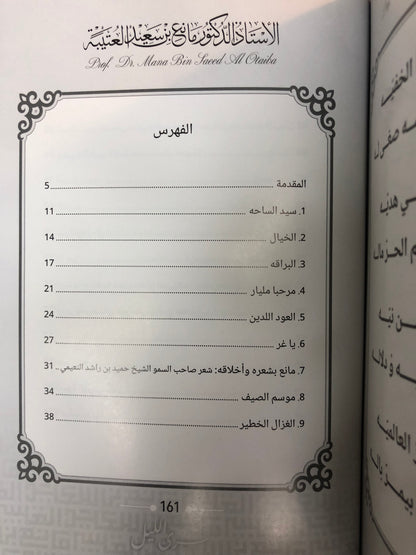 الأستاذ الدكتور مانع بن سعيد العتيبة
Prof. Dr. Mana Bin Saeed Al Otaiba
الفهرس
المقدمة ........ 5
1. سيد الساحه ........ 11
2. الخيال ........ 14
3. البراقه ........ 17
4. مرحبا مليار ........ 21
5. العود اللدين ........ 24
6. يا غر ........ 27
7. مانع بشعره وأخلاقه: شعر صاحب السمو الشيخ حميد بن راشد النعيمي .. 31
8. موسم الصيف ........ 34
9. الغزال الخطير ........ 38
161